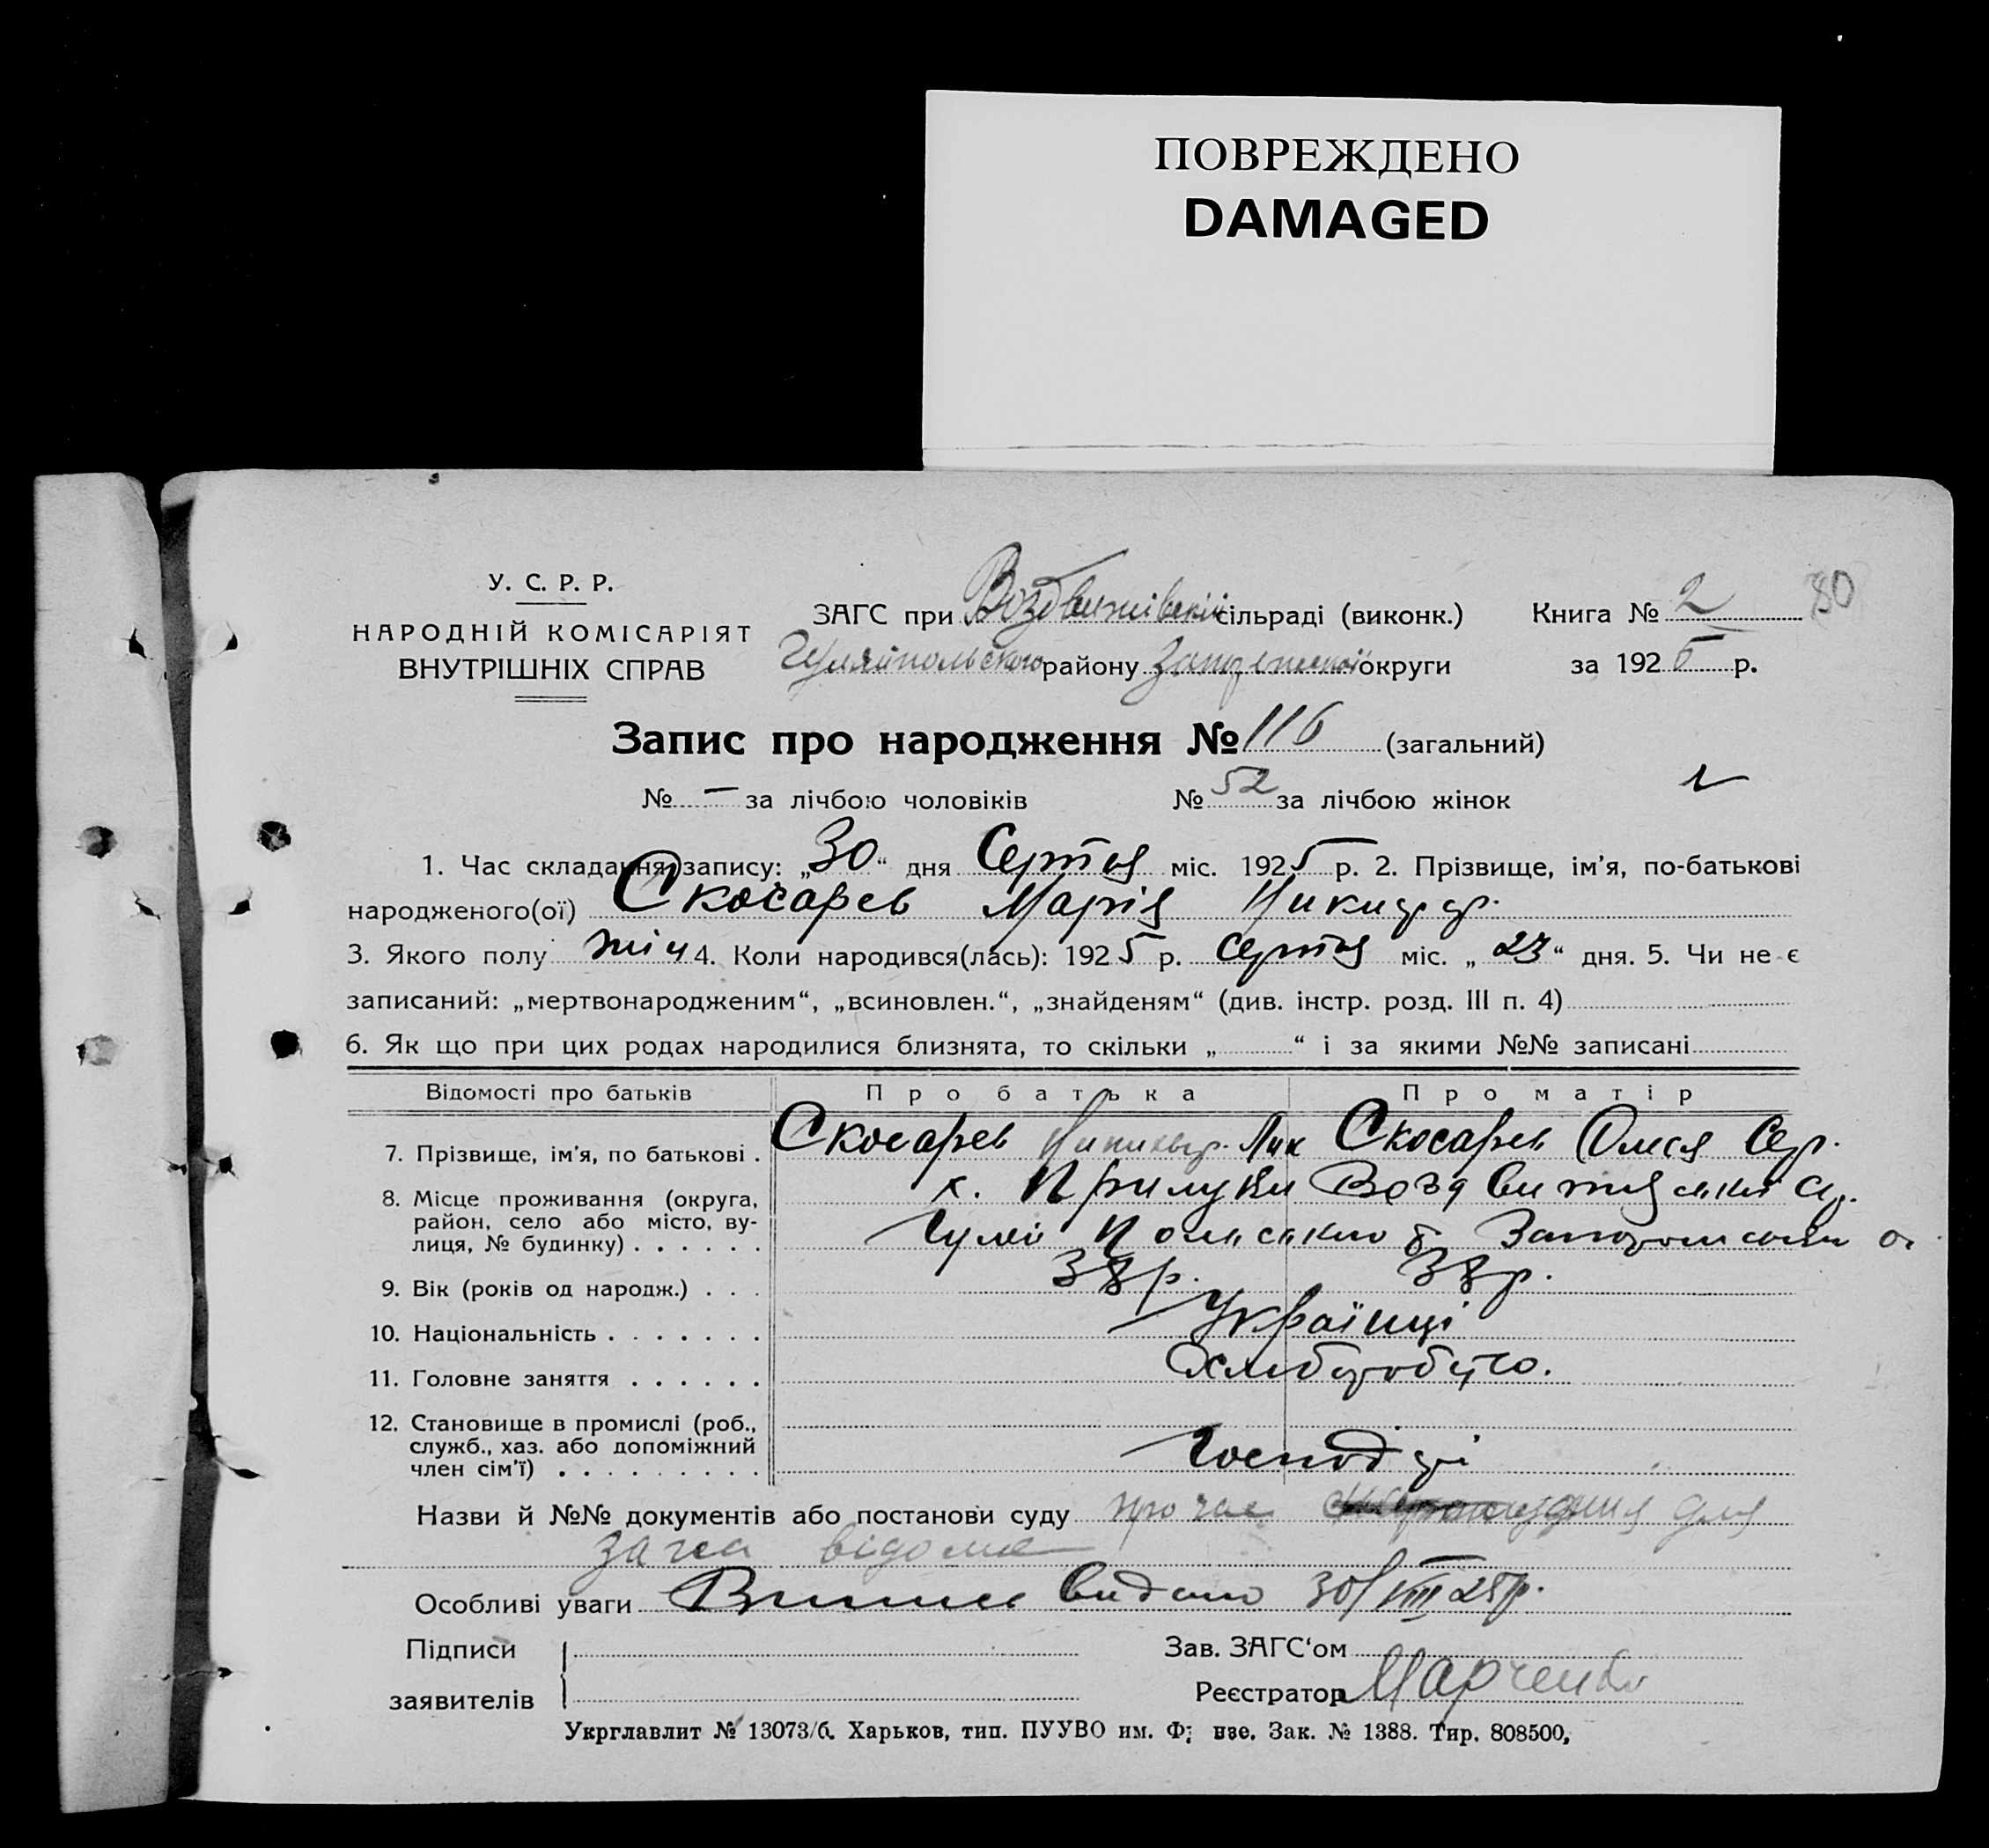 ПОВРЕЖДЕНО
DAMAGED
У. С. Р. Р.
НАРОДНІЙ КОМІСАРІЯТ
ВНУТРІШНІХ СПРАВ
ЗАГС при Воздвижівській сільраді (виконк.) Книга № 2 80
Гуляйпольского району Запорізької округи за 1925 р.
Запис про народження № 116 (загальний)
№ — за лічбою чоловіків № 52 за лічбою жінок
1. Час складання запису: „30“ дня Серпня міс. 1925 р. 2. Прізвище, ім’я, по-батькові
народженого(ої) Скосарев Марія
3. Якого полу жін 4. Коли народився(лась): 1925 р. Серпня міс. „23“ дня. 5. Чи не є
записаний: „мертвонародженим“, „всиновлен.“, „знайденям“ (див. інстр. розд. III п. 4)
6. Як що при цих родах народилися близнята, то скільки „ “ і за якими №№ записані
Відомості про батьків Про батька Про матір
7. Прізвище, ім’я, по батькові . Скосарев Скосарев Олися Сер.
8. Місце проживання (округа, х. Прилуки
район, село або місто, ву-
лиця, № будинку) . . . . . .
9. Вік (років од народж.) . . . 38 р. 38 р.
10. Національність . . . . . . . Українці
11. Головне заняття . . . . . .
12. Становище в промислі (роб.,
служб., хаз. або допоміжний
член сім’ї) . . . . . . . . . Господарі
Назви й №№ документів або постанови суду про час для
загса відоме
Особливі уваги Випис видано 30/VIII 25р.
Підписи Зав. ЗАГС‘ом
заявителів Реєстратор Марченко
Укрглавлит № 13073/б. Харьков, тип. ПУУВО им. Зак. № 1388. Тир. 808500,